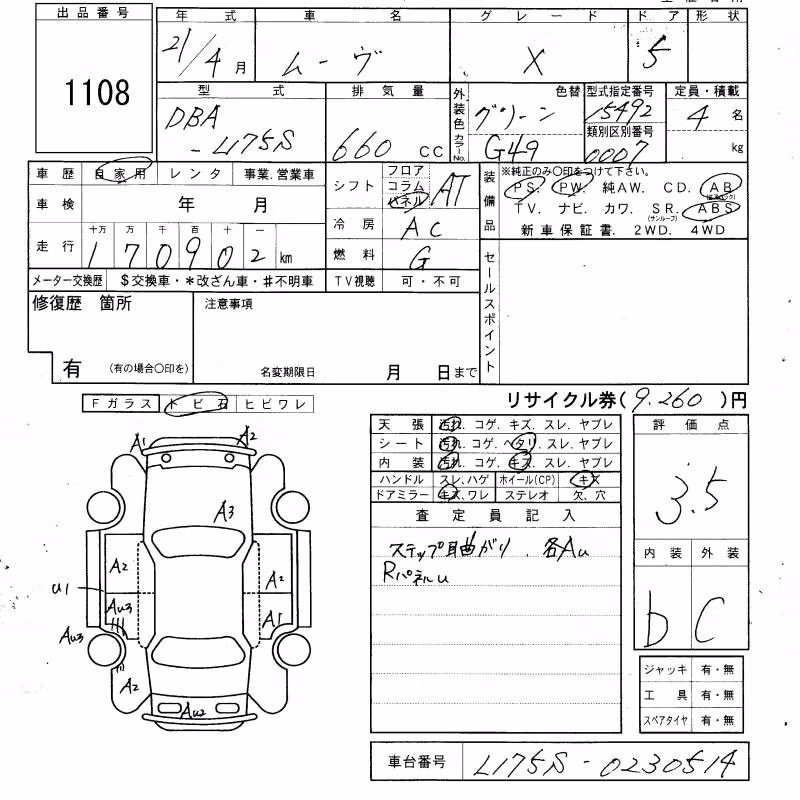 出品番号
1108
年式 車名 グレード ドア 形状
21/4月 ムーヴ X 5
型式 排気量 外装色 カラーNo. 色替 型式指定番号 定員・積載
DBA-L175S 660 CC グリーン G49 15492 4名
類別区別番号
0007 kg
車歴 自家用 レンタ 事業.営業車
車検 年 月
走行 十万 万 千 百 十 一
170902 km
メーター交換歴 $交換車・*改ざん車・#不明車
シフト フロア コラム パネル AT
冷房 AC
燃料 G
TV視聴 可・不可
装備品 ※純正のみ〇印をつけて下さい。
PS. PW. 純AW. CD. AB
TV. ナビ. カワ. SR.(サンルーフ) ABS
新車保証書. 2WD. 4WD
セールスポイント
修復歴 箇所
有 (有の場合〇印を)
注意事項
名変期限日 月 日まで
リサイクル券(9.260)円
Fガラス トビ石 ヒビワレ
天張 汚れ. コゲ. キズ. スレ. ヤブレ
シート 汚れ. コゲ. ヘタリ. スレ. ヤブレ
内装 汚れ. コゲ. キズ. スレ. ヤブレ
ハンドル スレ、ハゲ ホイール(CP) キズ
ドアミラー キズ、ワレ ステレオ 欠、穴
査定員記入
ステップ耳曲がり. 各Au
RパネルU
評価点
3.5
内装 外装
b C
ジャッキ 有・無
工具 有・無
スペアタイヤ 有・無
車台番号 L175S-0230514
A1 A2
A3
A2 A2
U1
Au3 A1
Au3
A2
Au2